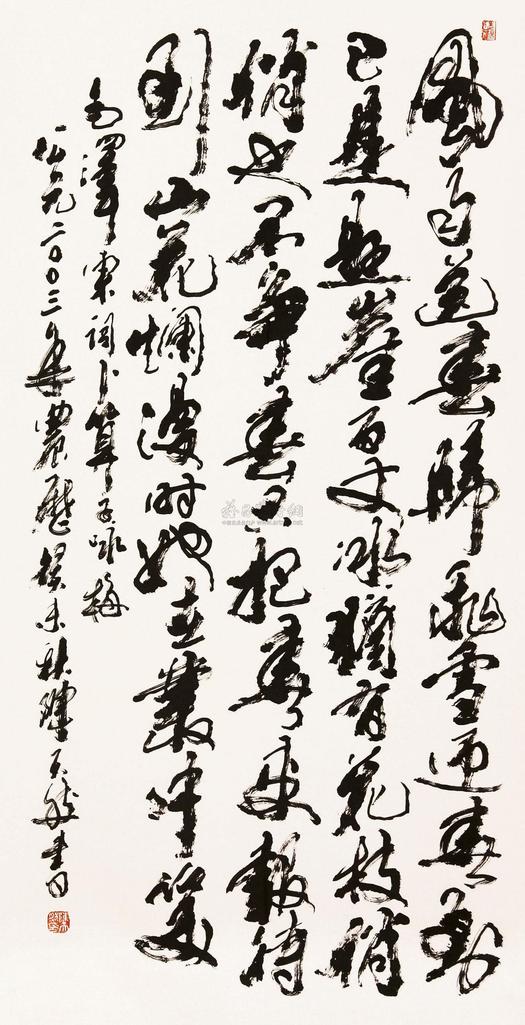 風雨送春歸飛雪迎春到
已是懸崖百丈冰猶有花枝俏
俏也不爭春只把春來報待
到山花爛漫時她在叢中笑
毛澤東詞卜算子咏梅
公元二00三年農歷癸未秋陳天書